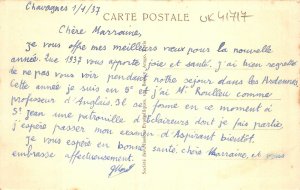 Chavagnes 1/1/37
CARTE POSTALE
UK 41717
Chère Marraine,
je vous offre mes meilleurs vœux pour la nouvelle
année. Que 1937 vous apporte joie et santé. j'ai bien regretté
de ne pas vous voir pendant notre séjour dans les Ardennes.
Cette année je suis en 5e et j'ai Mr Roulleu comme
professeur d'Anglais. Il se forme en ce moment à
St jean une patrouille d'Eclaireurs dont je fais partie,
j'espère passer mon examen d'Aspirant bientôt.
Je vous espère en bonne santé, chère Marraine, et vous
embrasse affectueusement.